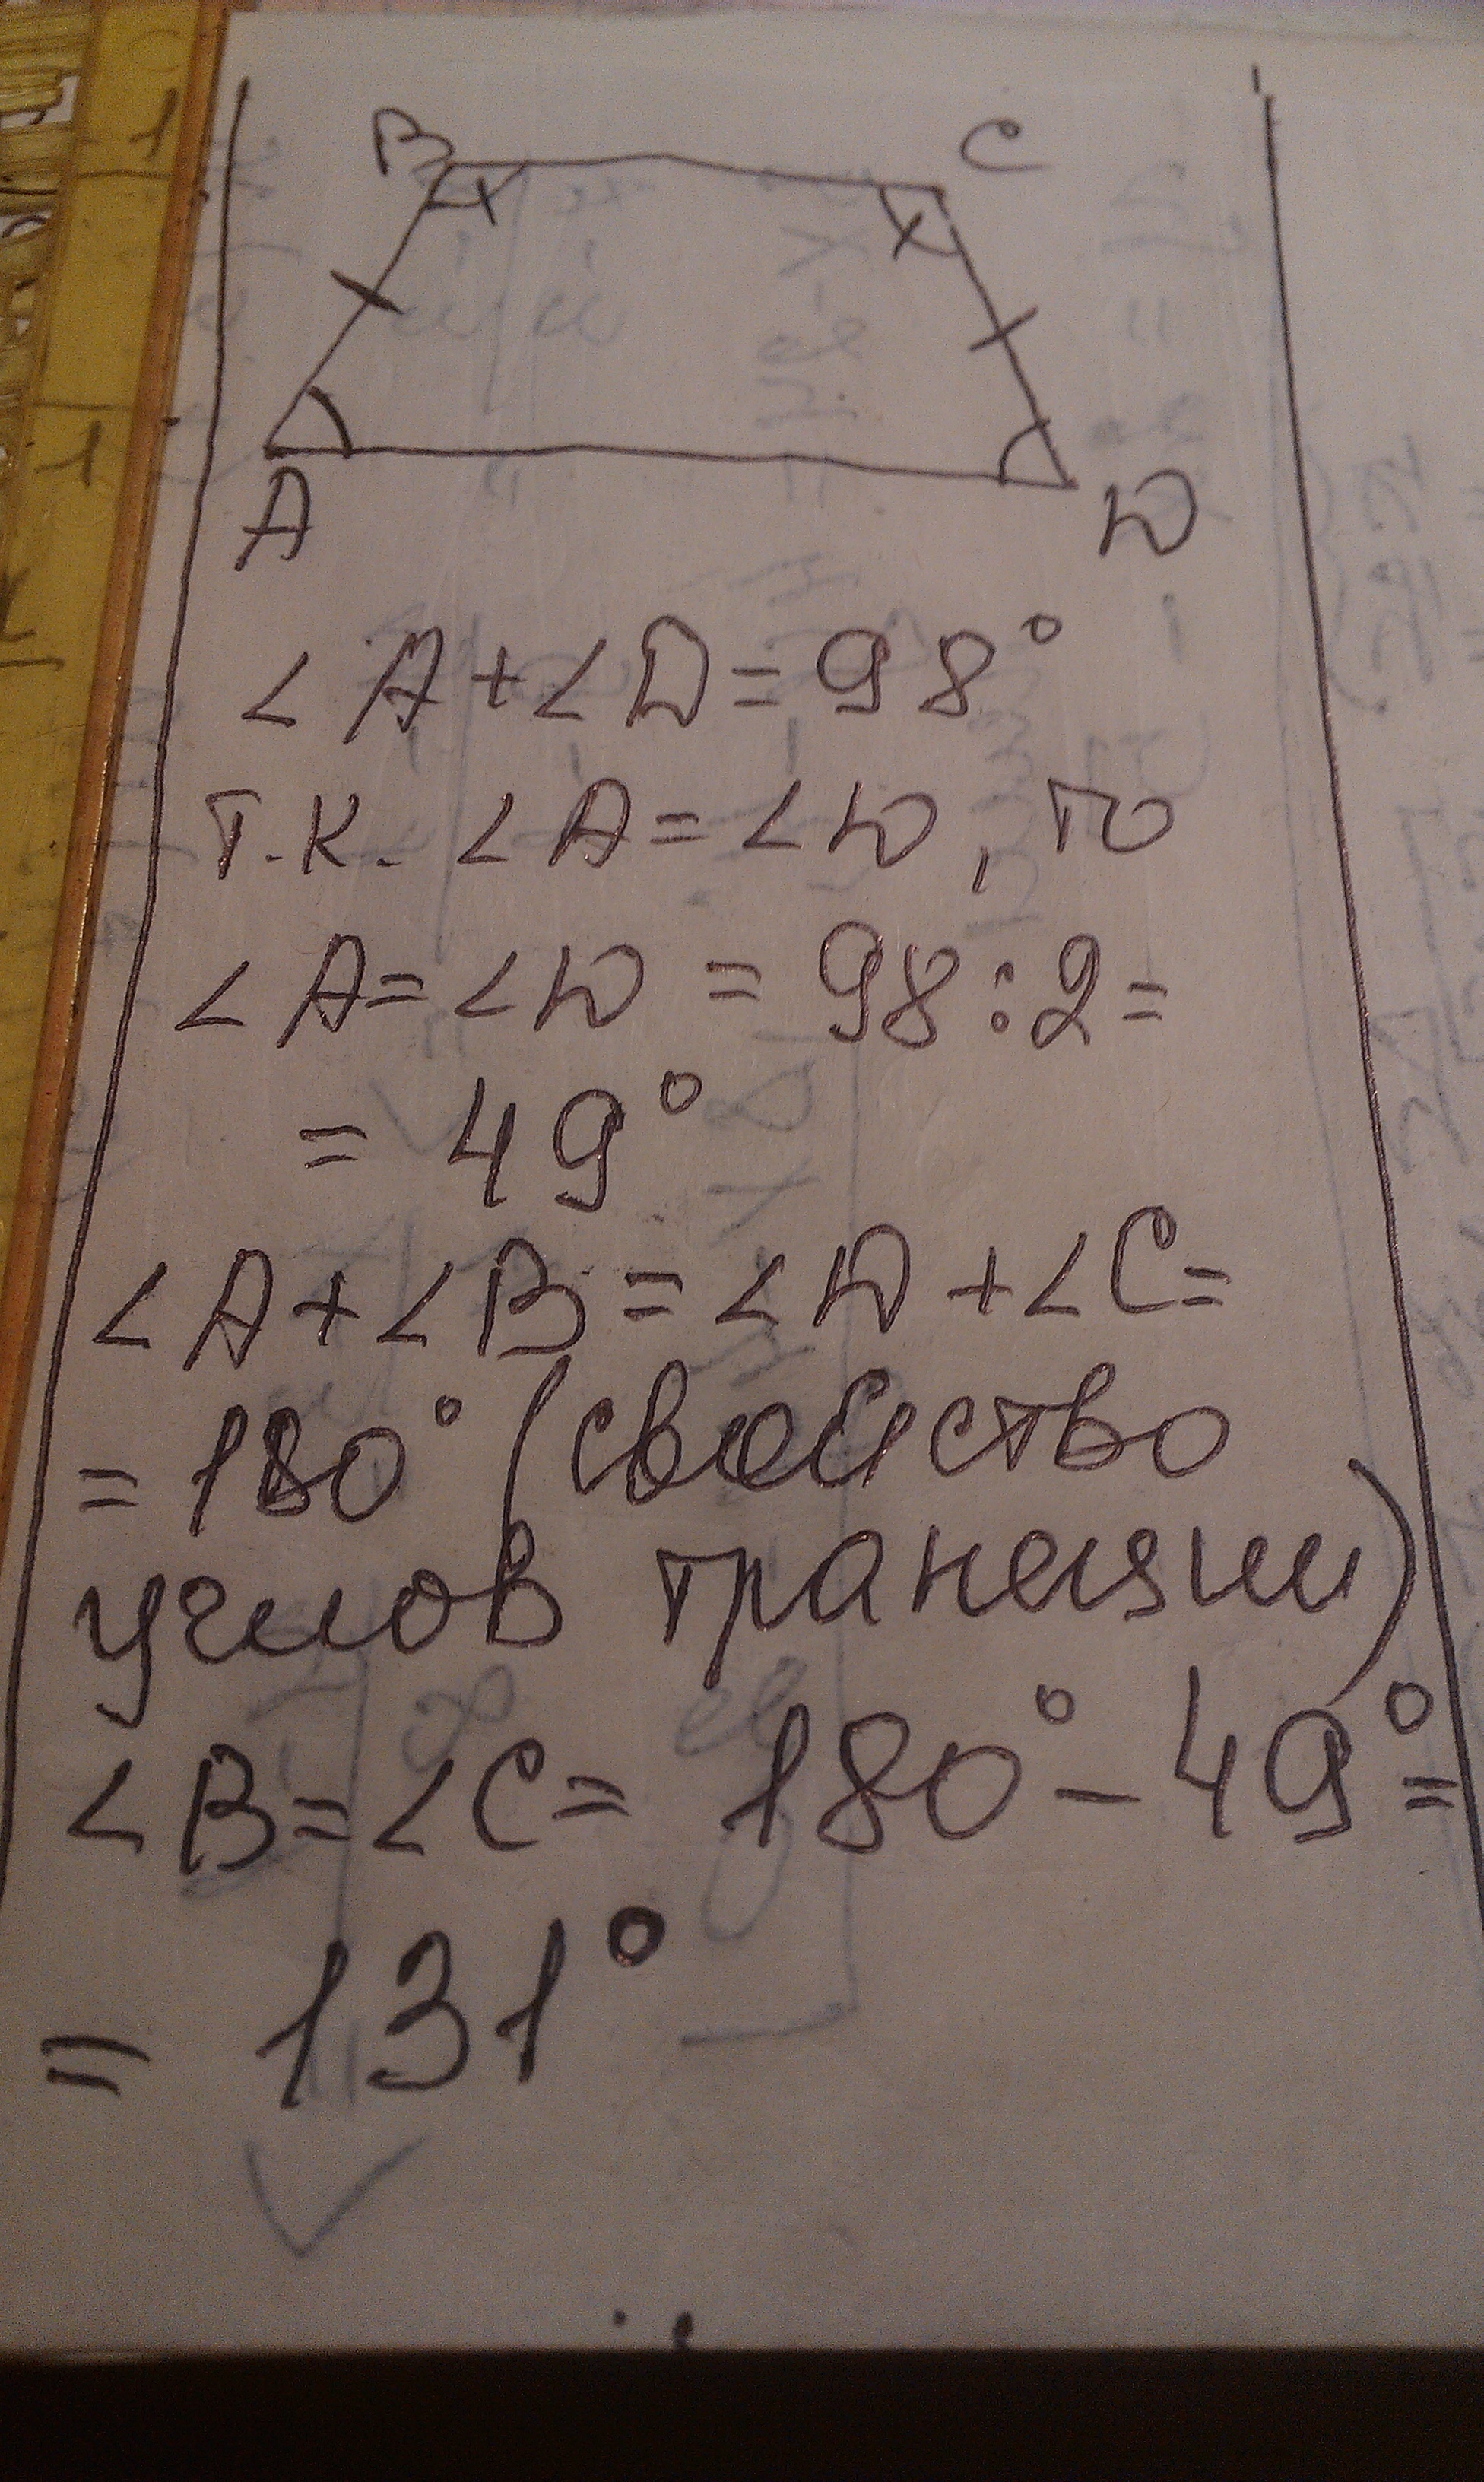 B C
A D
∠A+∠D=98°
т.к. ∠A=∠D, то
∠A=∠D=98:2=
=49°
∠A+∠B=∠D+∠C=
=180° (свойство
углов трапеции)
∠B=∠C=180°-49°=
=131°